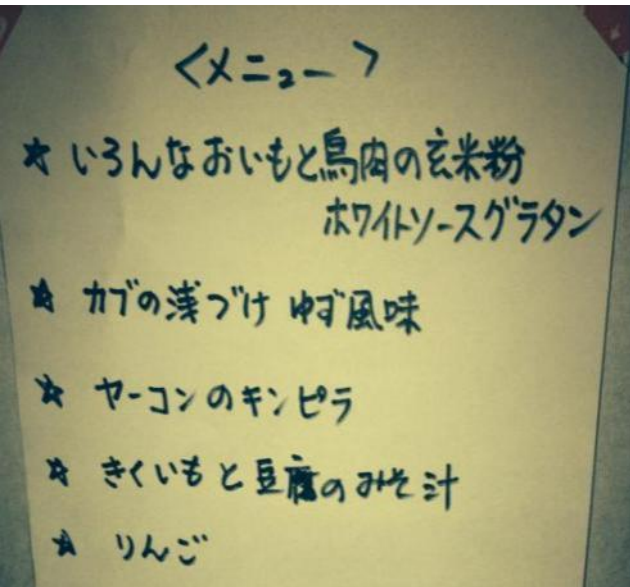 <メニュー>
☆ いろんなおいもと鳥肉の玄米粉
ホワイトソースグラタン
☆ カブの浅づけ ゆず風味
☆ ヤーコンのキンピラ
☆ きくいもと豆腐のみそ汁
☆ りんご